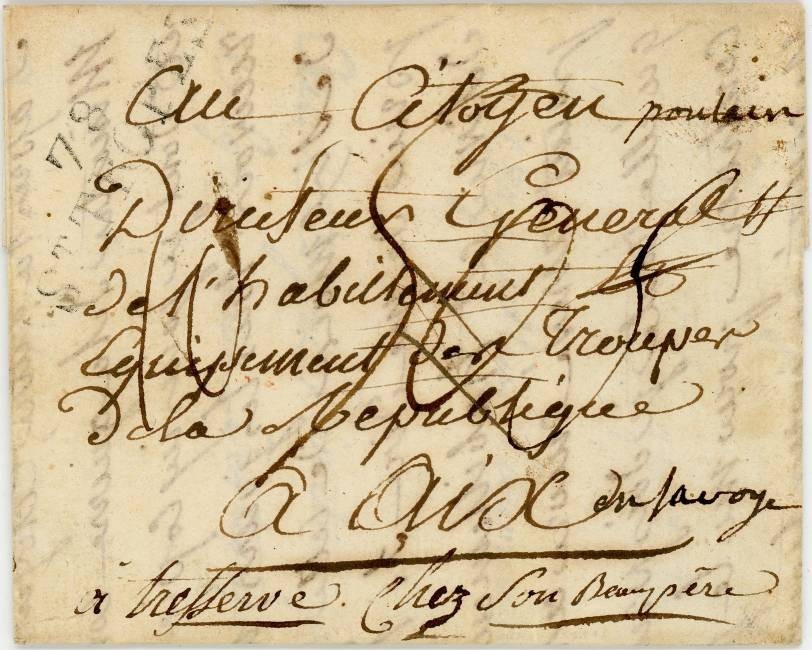 78
ST. TROPEZ
Au Citoyen poulain
Directeur General
de l'habillement &
Equipement des Troupes
De la Republique
à Aix en Savoye
à tresserve. Chez Son Beaupère